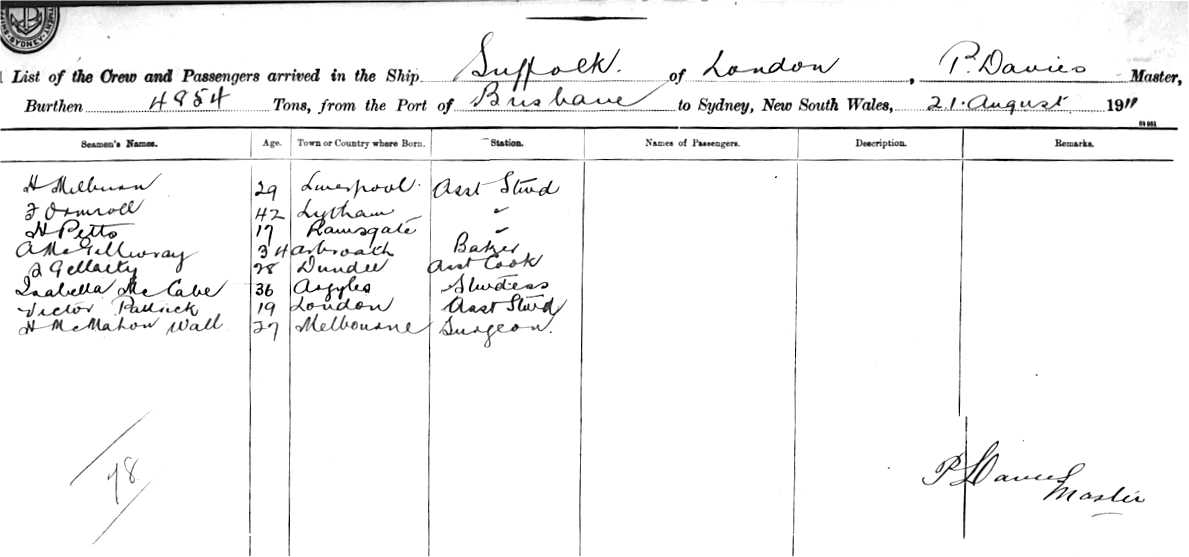 SYDNEY
List of the Crew and Passengers arrived in the Ship Suffolk. of London, P. Davies Master,
Burthen 4954 Tons, from the Port of Brisbane to Sydney, New South Wales, 21. August 1911
Seamen's Names. Age. Town or Country where Born. Station. Names of Passengers. Description. Remarks.
H Milburn 29 Liverpool. Asst Stwd
42 Lytham "
H Petts 17 Ramsgate "
A McGillivray 34 Arbroath Baker
28 Dundee Asst Cook
Isabella McCabe 36 Argyles Stwdess
Victor Pattrick 19 London Asst Stwd
H McMahon Wall 27 Melbourne Surgeon.
78
P Davies
Master